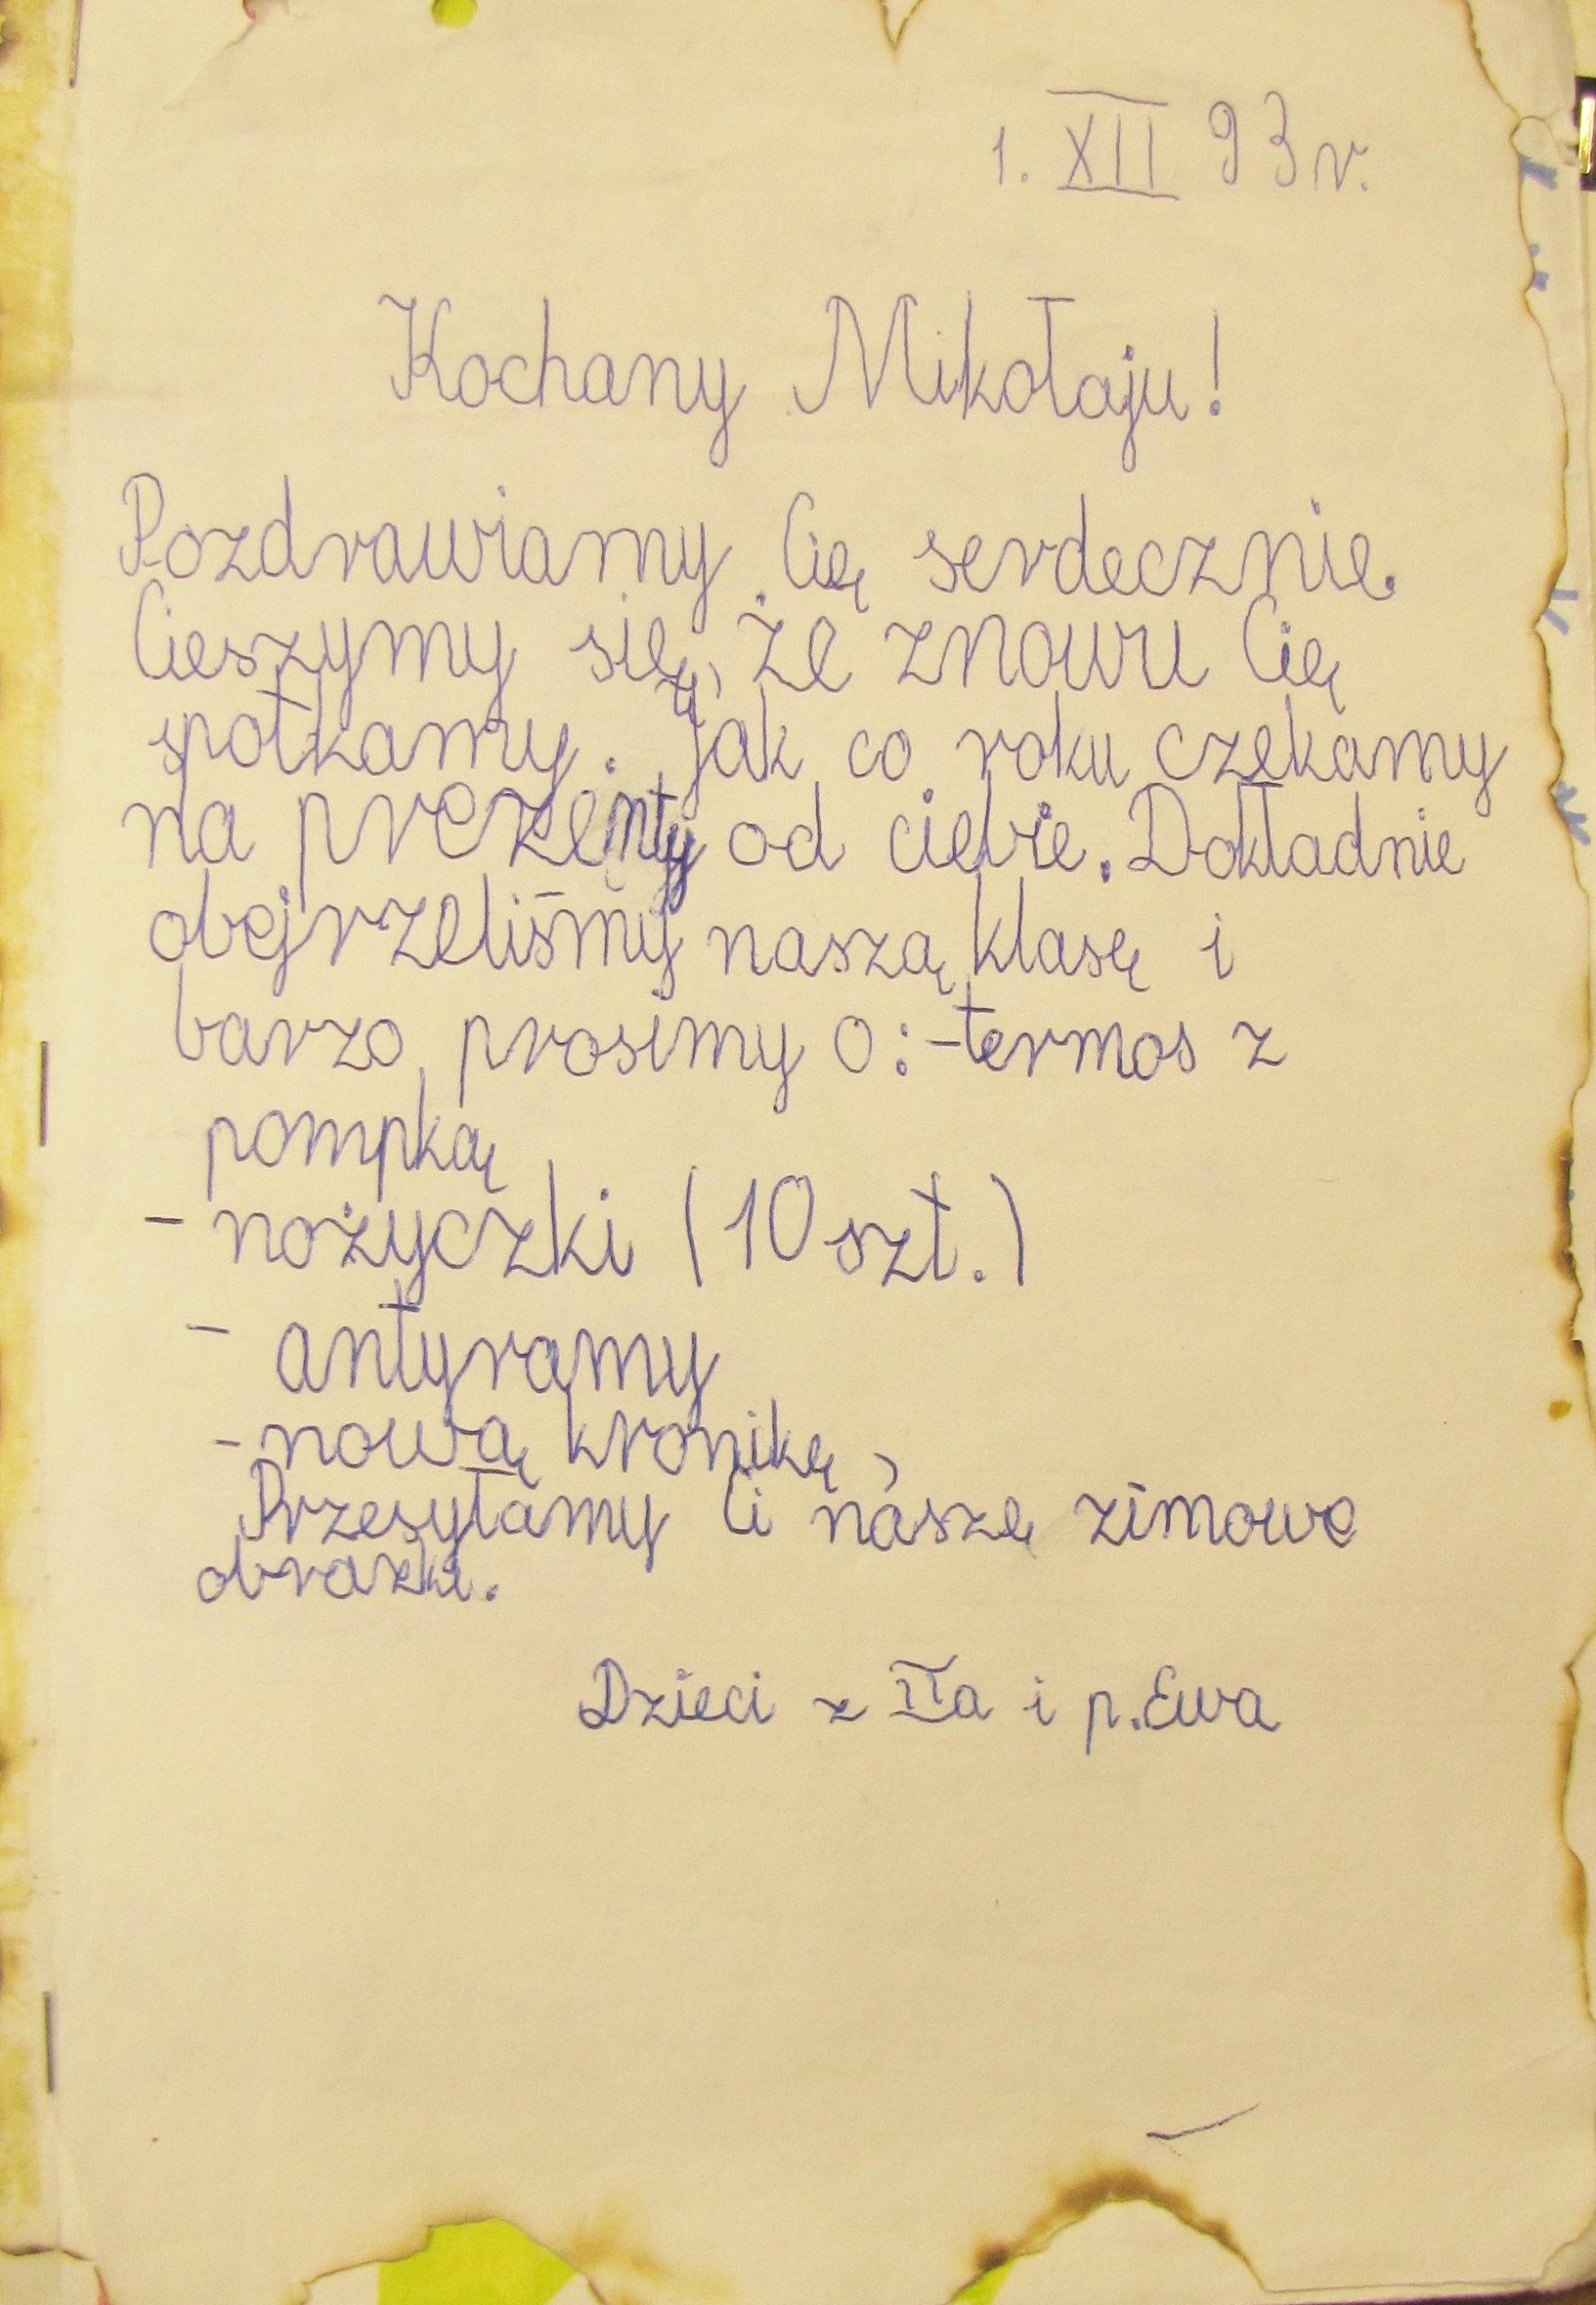 1. XII 93 r.
Kochany Mikołaju!
Pozdrawiamy Cię serdecznie.
Cieszymy się, że znowu Cię
spotkamy. Jak co roku czekamy
na prezenty od ciebie. Dokładnie
obejrzeliśmy naszą klasę i
barzo prosimy o: - termos z
pompką
- nożyczki (10 szt.)
- antyramy
- nową kronikę,
Przesyłamy Ci nasze zimowe
obrazki.
Dzieci z IIa i p. Ewa